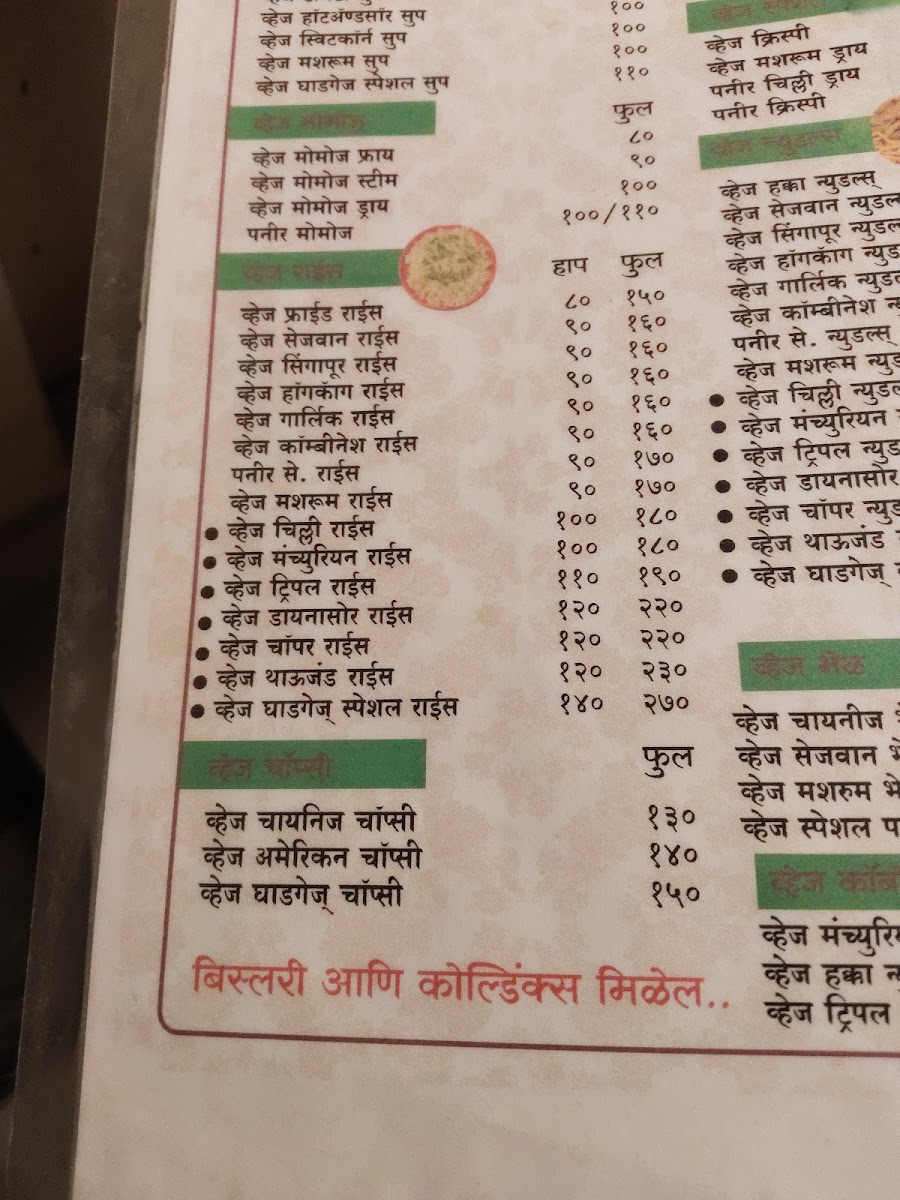 व्हेज हॉटॲण्डसॉर सुप १००
व्हेज स्विटकॉर्न सुप १००
व्हेज मशरूम सुप १००
व्हेज घाडगेज स्पेशल सुप ११०
व्हेज मोमोज फुल
व्हेज मोमोज फ्राय ८०
व्हेज मोमोज स्टीम ९०
व्हेज मोमोज ड्राय १००
पनीर मोमोज १००/११०
व्हेज राईस हाप फुल
व्हेज फ्राईड राईस ८० १५०
व्हेज सेजवान राईस ९० १६०
व्हेज सिंगापूर राईस ९० १६०
व्हेज हॉगकॅाग राईस ९० १६०
व्हेज गार्लिक राईस ९० १६०
व्हेज कॉम्बीनेश राईस ९० १६०
पनीर से. राईस ९० १७०
व्हेज मशरूम राईस ९० १७०
• व्हेज चिल्ली राईस १०० १८०
• व्हेज मंच्युरियन राईस १०० १८०
• व्हेज ट्रिपल राईस ११० १९०
• व्हेज डायनासोर राईस १२० २२०
• व्हेज चॉपर राईस १२० २२०
• व्हेज थाऊजंड राईस १२० २३०
• व्हेज घाडगेज् स्पेशल राईस १४० २७०
व्हेज चॉप्सी फुल
व्हेज चायनिज चॉप्सी १३०
व्हेज अमेरिकन चॉप्सी १४०
व्हेज घाडगेज् चॉप्सी १५०
बिस्लरी आणि कोल्डिंक्स मिळेल..
व्हेज स्पेशल
व्हेज क्रिस्पी
व्हेज मशरूम ड्राय
पनीर चिल्ली ड्राय
पनीर क्रिस्पी
व्हेज न्युडल्स
व्हेज हक्का न्युडल्स्
व्हेज सेजवान
व्हेज सिंगापूर
व्हेज हॉगकॅाग
व्हेज गार्लिक
व्हेज कॉम्बीनेश
पनीर से. न्युडल्स्
व्हेज मशरूम
• व्हेज चिल्ली
• व्हेज मंच्युरियन
• व्हेज ट्रिपल
• व्हेज डायनासोर
• व्हेज चॉपर
• व्हेज थाऊजंड
• व्हेज घाडगेज्
व्हेज भेळ
व्हेज चायनीज
व्हेज सेजवान
व्हेज मशरुम
व्हेज स्पेशल
व्हेज
व्हेज
व्हेज हक्का
व्हेज ट्रिपल